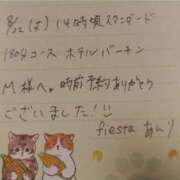 8/22(木) 14時頃スタンダード
180分コース ホテルバーキン
M様へ。時前予約ありがとう
ございました!
fiesta あんり